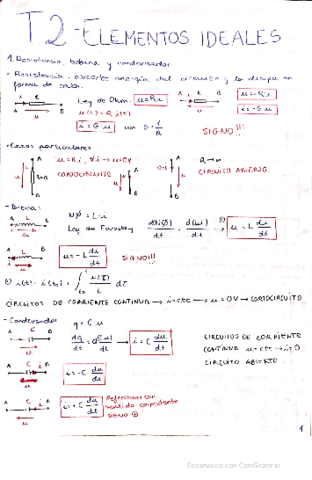 T2-ELEMENTOS IDEALES
1. Resistencia, bobina y condensador.
- Resistencia: absorbe energía del circuito y la disipa en
forma de calor.
Ley de Ohm: u = Ri
u = -Ri
u(t) = R i(t)
i = -Gu
i = Gu con G = 1/R
SIGNO!!!
- Casos particulares
u = Ri, ∀i → u = 0V
CORTOCIRCUITO
R → ∞
CIRCUITO ABIERTO
- Bobina:
NØ = L·i
Ley de Faraday
u = L di/dt
u = -L di/dt
SIGNO!!!
CIRCUITOS DE CORRIENTE CONTINUA → i = cte → u = 0V → CORTOCIRCUITO
- Condensador
q = Cu
i = C du/dt
CIRCUITOS DE CORRIENTE
CONTINUA u = cte → i = 0
CIRCUITO ABIERTO
i = -C du/dt
i = C du/dt
1
Escaneado con CamScanner